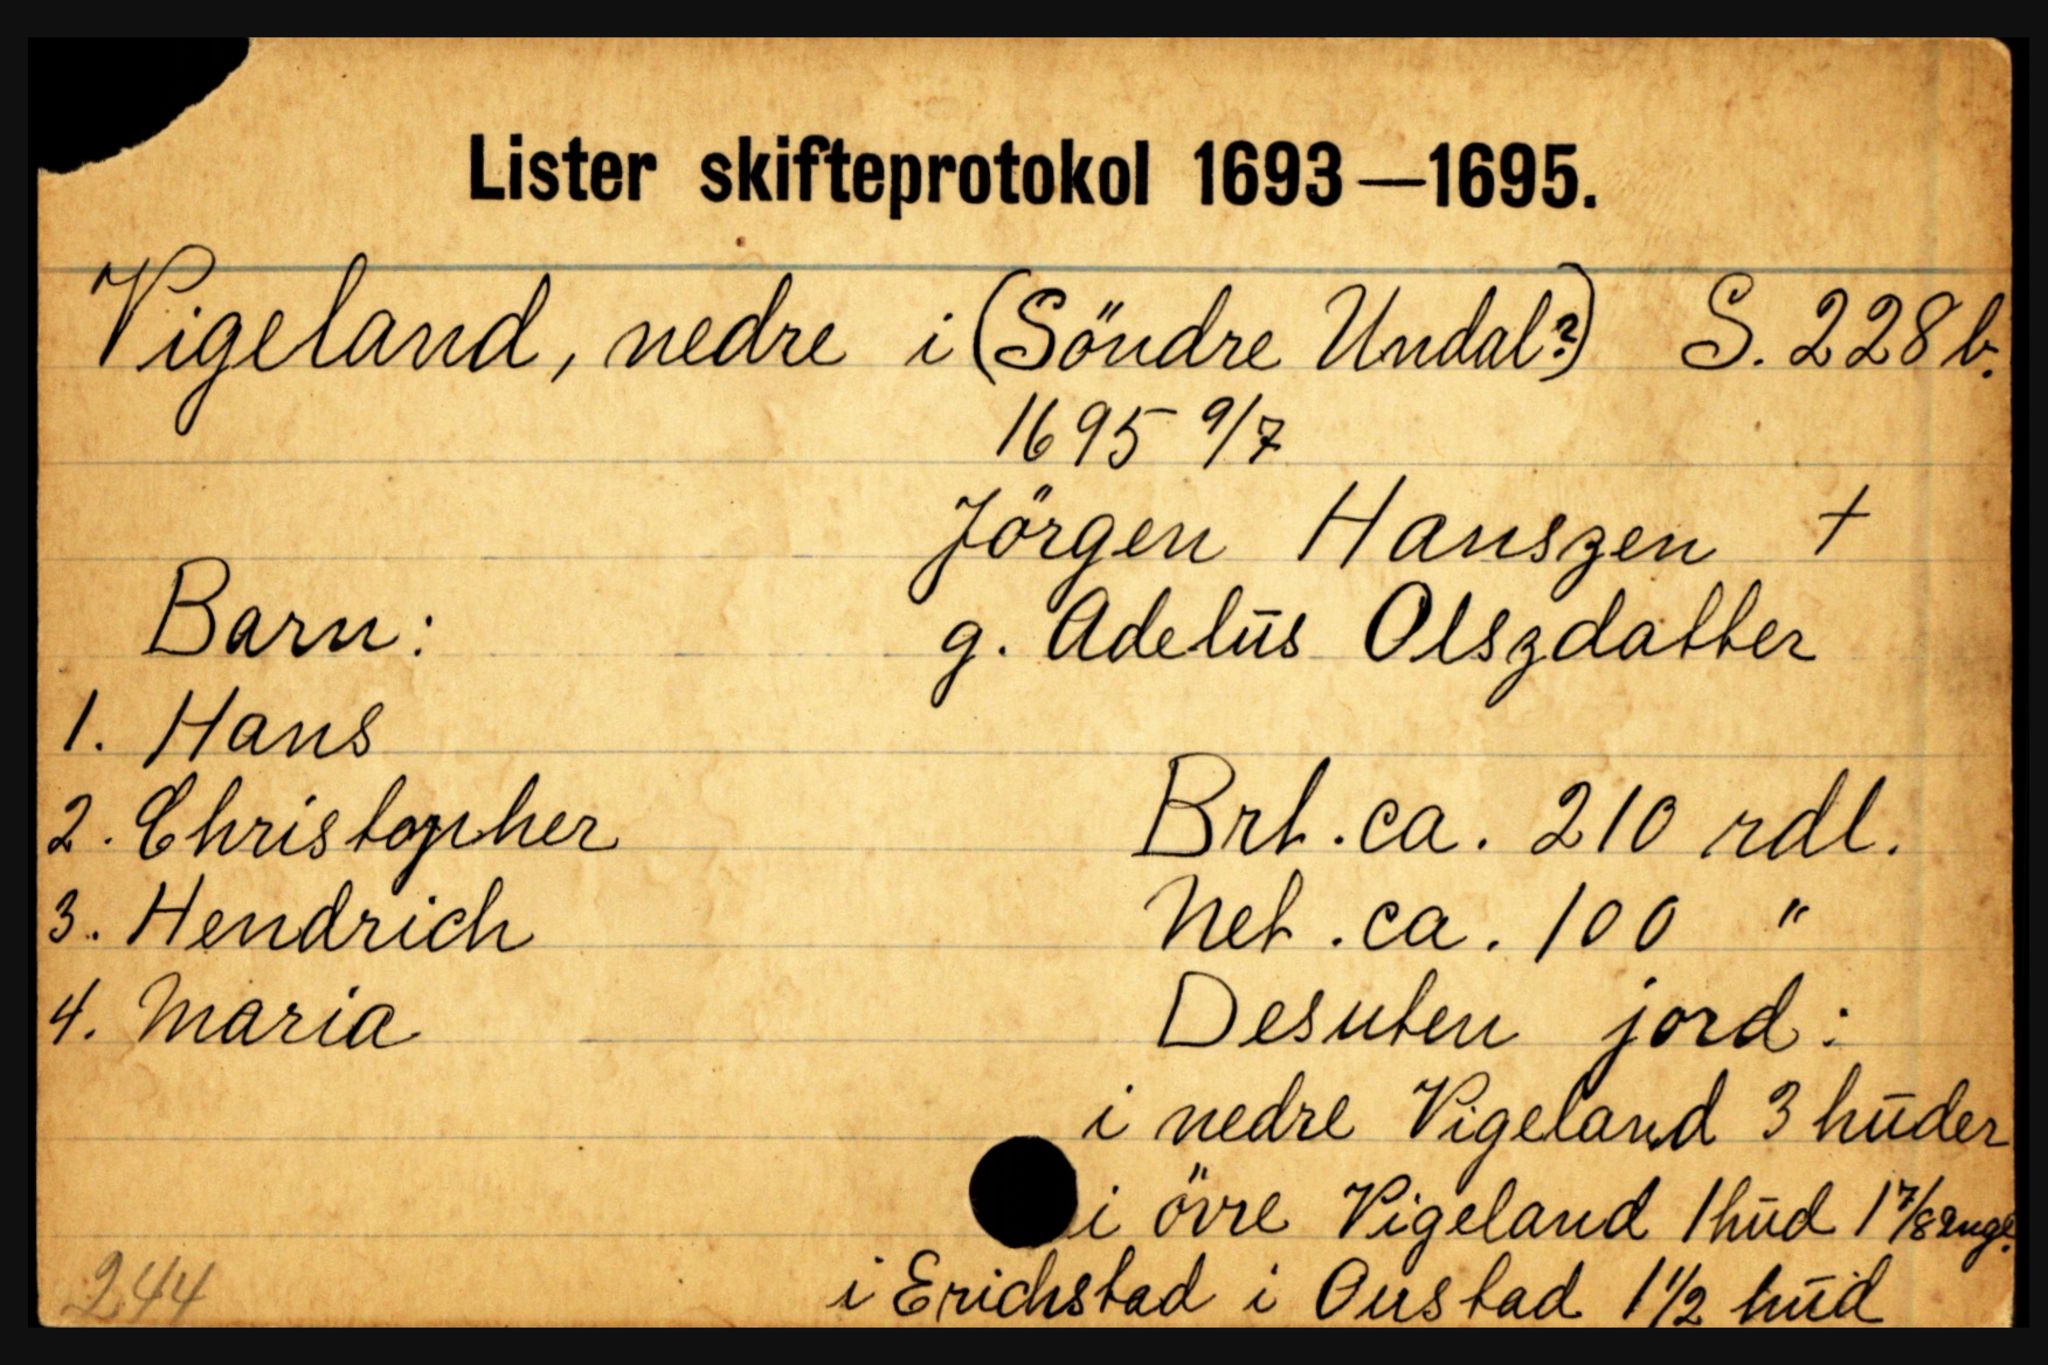 Lister skifteprotokol 1693—1695.
Vigeland, nedre i (Söndre Undal?) S. 228 b.
1695 9/7
Jörgen Hanszen +
Barn: g. Adelūs Olszdatter
1. Hans
2. Christopher Brt. ca. 210 rdl.
3. Hendrich Net. ca. 100 "
4. Maria Desuten jord:
i nedre Vigeland 3 hūder
i övre Vigeland 1 hūd 1 7/8 engl.
i Erichstad i Oustad 1 1/2 hūd
244